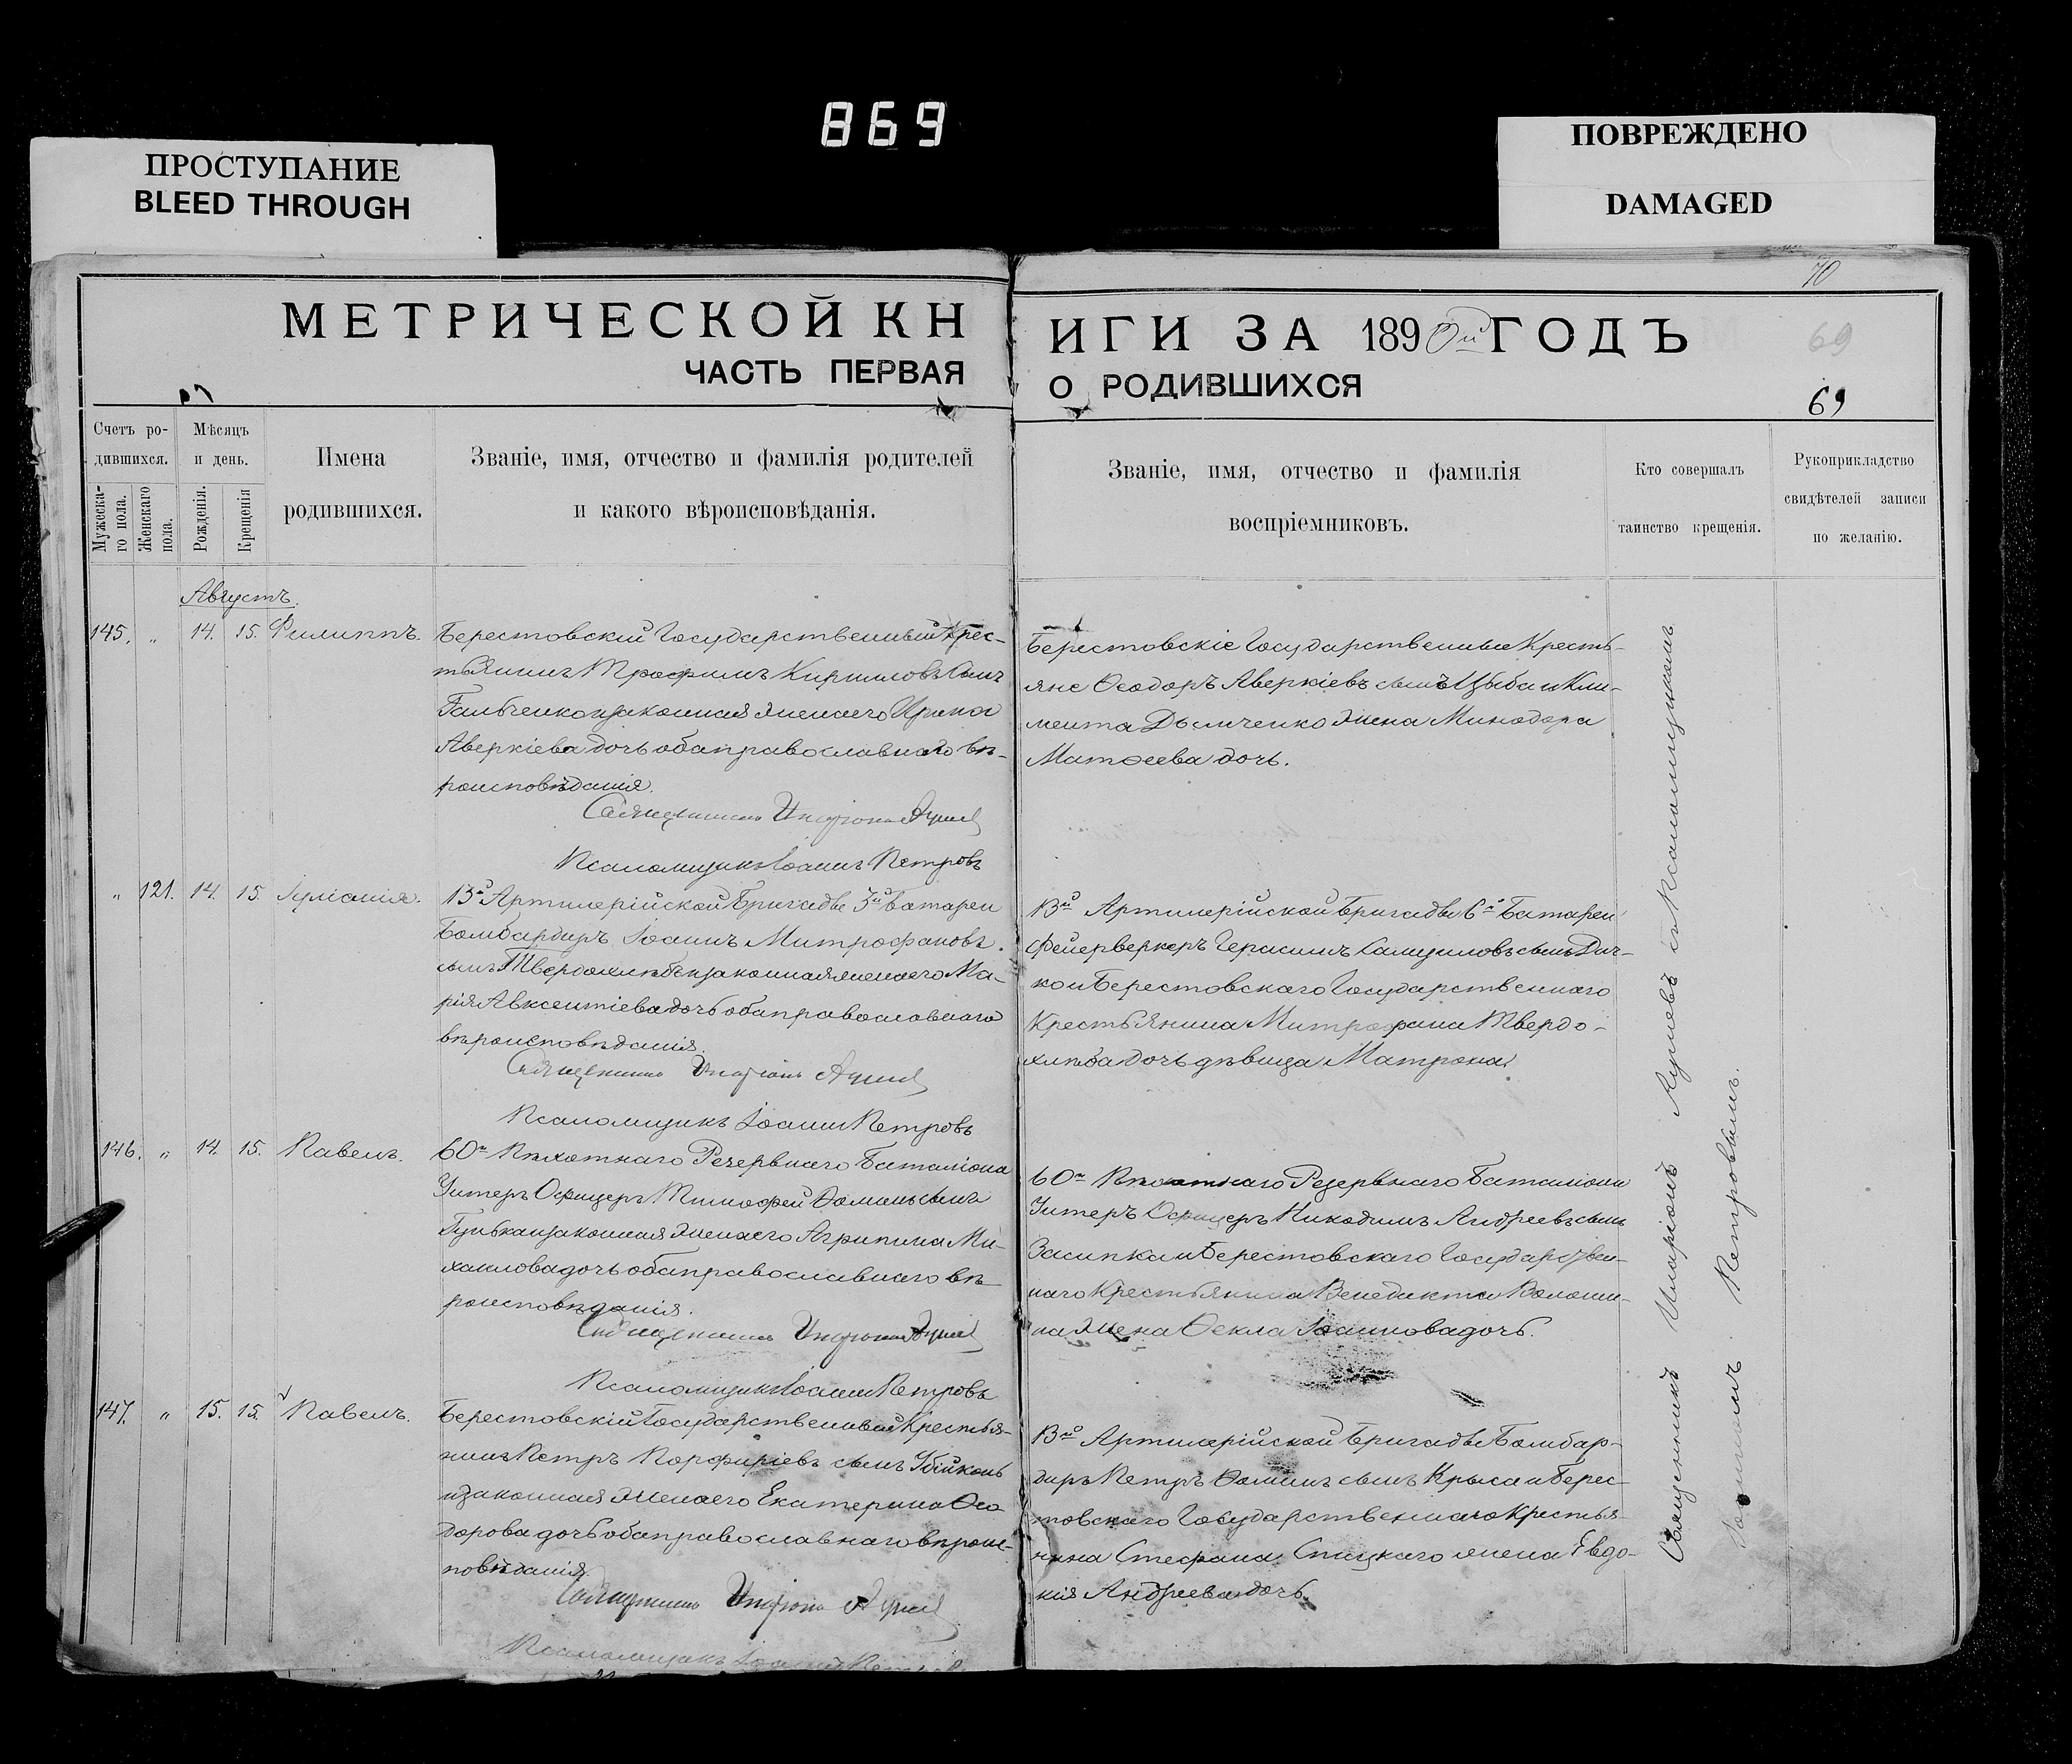 869
ПРОСТУПАНИЕ
BLEED THROUGH
ПОВРЕЖДЕНО
DAMAGED
70
МЕТРИЧЕСКОЙ КН
ИГИ ЗА 1890й ГОДЪ
69
ЧАСТЬ ПЕРВАЯ
О РОДИВШИХСЯ
69
Счетъ ро-
дившихся.
Мужеска-
го пола.
Женскаго
пола.
Мѣсяцъ
и день.
Рожденія.
Крещенія
Имена
родившихся.
Званіе, имя, отчество и фамилія родителей
и какого вѣроисповѣданія.
Званіе, имя, отчество и фамилія
воспріемниковъ.
Кто совершалъ
таинство крещенія.
Рукоприкладство
свидѣтелей записи
по желанію.
Августъ.
145. „ 14. 15. Филиппъ.
Берестовскій Государственный Крес-
тьянинъ Трофимъ Кирилловъ сынъ
и законная жена его Ирина
Аверкіева дочь оба православнаго вѣ-
роисповѣданія.
Священникъ Иларіонъ
Псаломщикъ Іоаннъ Петровъ
Берестовскіе Государственные Кресть-
яне Ѳеодоръ Аверкіевъ сынъ Цыба и Кли-
мента жена Минодора
Матѳеева дочь.
„ 121. 14. 15. Іуліанія.
13й Артилерійской Бригады 3й батареи
Бомбардиръ Іоаннъ Митрофановъ
сынъ Твердохлѣбъ и законная жена его Ма-
рія Авксентіева дочь оба православнаго
вѣроисповѣданія.
Священникъ Иларіонъ
Псаломщикъ Іоаннъ Петровъ
13й Артилерійской Бригады 6й Батареи
Фейерверкеръ Герасимъ сынъ Дич-
ко и Берестовскаго Государственнаго
Крестьянина Митрофана Твердо-
хлѣба дочь дѣвица Матрона
146. „ 14. 15. Павелъ.
60го Пѣхотнаго Резервнаго Баталіона
Унтеръ Офицеръ Тимофей Ѳоминъ сынъ
и законная жена его Агрипина Ми-
хаилова дочь оба православнаго вѣ-
роисповѣданія.
Священникъ Иларіонъ
Псаломщикъ Іоаннъ Петровъ
60го Пѣхотнаго Резервнаго Баталіона
Унтеръ Офицеръ Никодимъ Андреевъ сынъ
Засипка и Берестовскаго Государствен-
наго Крестьянина Венедикта Волоши-
на жена Ѳекла Іоаннова дочь.
147. „ 15. 15. Павелъ.
Берестовскій Государственный Крестья-
нинъ Петръ Порфиріевъ сынъ
и законная жена его Екатерина Ѳео-
дорова дочь оба православнаго вѣроис-
повѣданія.
Священникъ Иларіонъ
Псаломщикъ Іоаннъ Петровъ
13й Артилерійской Бригады Бомбар-
диръ Петръ Ѳоминъ сынъ Крыса и Берес-
товскаго Государственнаго Крестья-
нина Стефана Спицкаго жена Евдо-
кія Андреева дочь.
Священникъ Иларіонъ съ Псаломщикомъ
Іоанномъ Петровымъ.